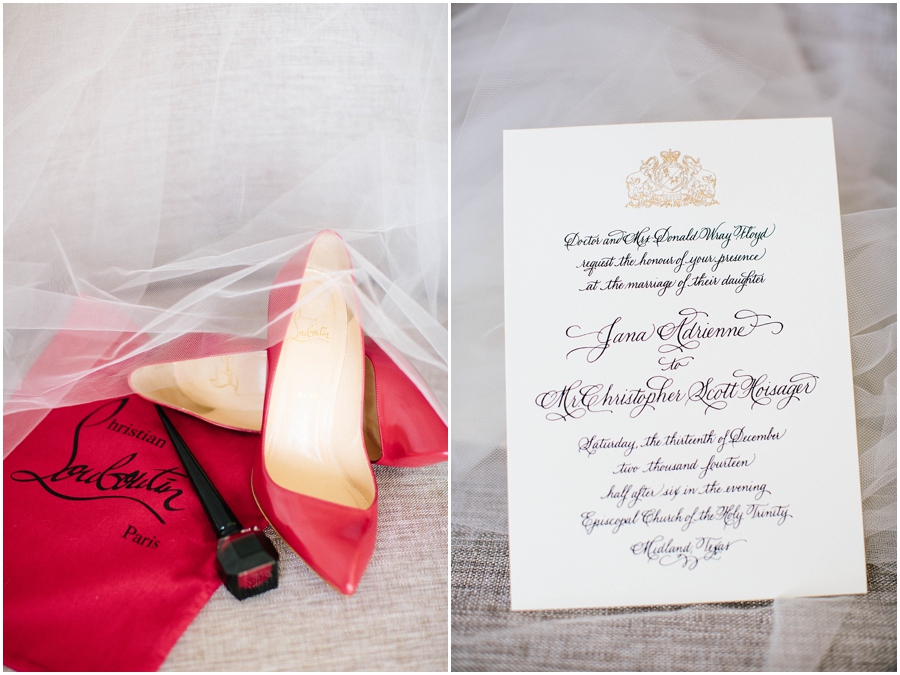 Louboutin
Christian
Louboutin
Paris
Doctor and Mrs Donald Wray Floyd
request the honour of your presence
at the marriage of their daughter
Jana Adrienne
to
Mr. Christopher Scott Hoisager
Saturday, the thirteenth of December
two thousand fourteen
half after six in the evening
Episcopal Church of the Holy Trinity
Midland, Texas